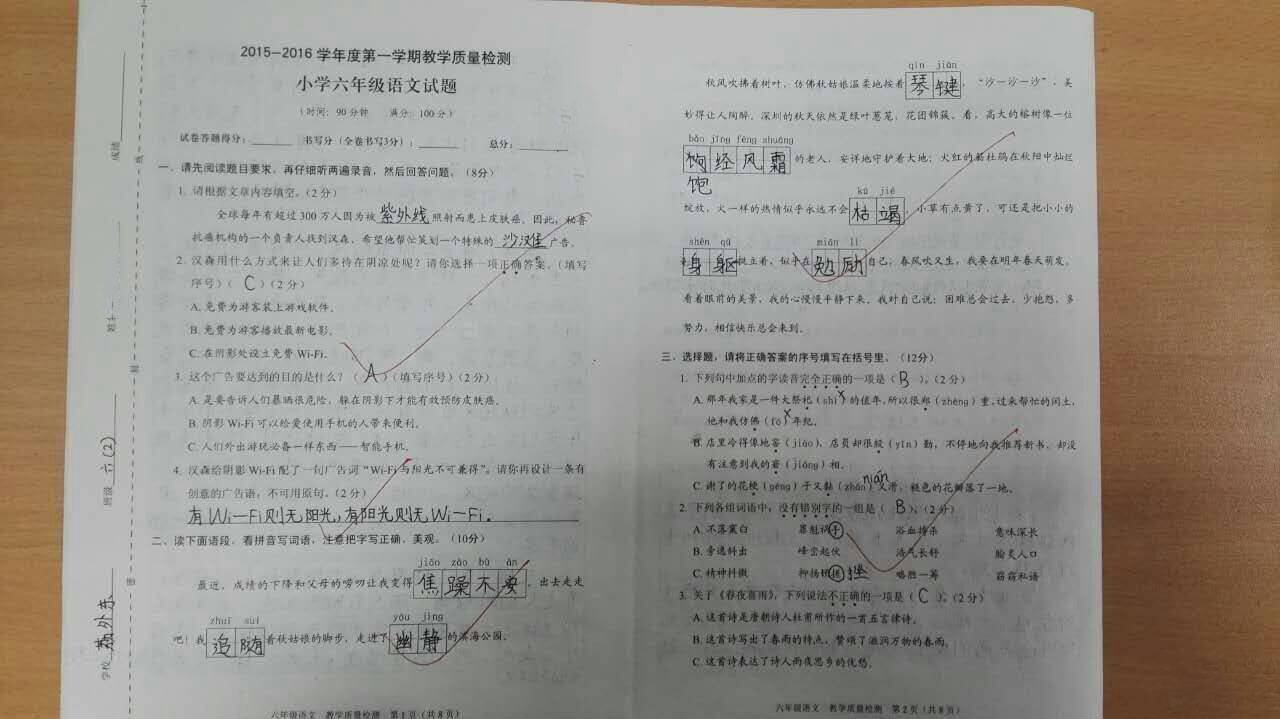 2015-2016 学年度第一学期教学质量检测
小学六年级语文试题
（时间：90 分钟 满分：100 分）
试卷答题得分：______ 书写分（全卷书写3分）：______ 总分：______
一、请先阅读题目要求，再仔细听两遍录音，然后回答问题。（8分）
1. 请根据文章内容填空。（2 分）
全球每年有超过 300 万人因为被 紫外线 照射而患上皮肤癌。因此，秘鲁
抗癌机构的一个负责人找到汉森，希望他帮忙策划一个特殊的 沙汉堡 广告。
2. 汉森用什么方式来让人们多待在阴凉处呢？请你选择一项正确答案。（填写
序号）（ C ）（2 分）
A. 免费为游客装上游戏软件。
B. 免费为游客播放最新电影。
C. 在阴影处设立免费 Wi-Fi。
3. 这个广告要达到的目的是什么？（ A ）（填写序号）（2 分）
A. 是要告诉人们暴晒很危险，躲在阴影下才能有效预防皮肤癌。
B. 阴影 Wi-Fi 可以给爱使用手机的人带来便利。
C. 人们外出游玩必备一样东西——智能手机。
4. 汉森给阴影 Wi-Fi 配了一句广告词“Wi-Fi 与阳光不可兼得”。请你再设计一条有
创意的广告语，不可用原句。（2 分）
有Wi-Fi则无阳光，有阳光则无Wi-Fi。
二、读下面语段，看拼音写词语，注意把字写正确、美观。（10分）
jiāo zào bù ān
最近，成绩的下降和父母的唠叨让我变得 焦躁不安 ，出去走走
zhuī suí yōu jìng
吧！我 追随 着秋姑娘的脚步，走进了 幽静 的滨海公园。
六年级语文 教学质量检测 第 1 页（共 8 页）
qín jiàn
秋风吹拂着树叶，仿佛秋姑娘温柔地按着 琴键 ，“沙—沙—沙”，美
妙得让人陶醉。深圳的秋天依然是绿叶葱茏，花团锦簇。看，高大的榕树像一位
bǎo jīng fēng shuāng
经风霜 的老人，安详地守护着大地；火红的簕杜鹃在秋阳中灿烂
饱
kū jié
绽放，火一样的热情似乎永远不会 枯竭 。小草有点黄了，可还是把小小的
shēn qū miǎn lì
身躯 挺立着，似乎在 勉励 自己，春风吹又生，我要在明年春天萌发。
看着眼前的美景，我的心慢慢平静下来。我对自己说：困难总会过去，少抱怨，多
努力，相信快乐总会来到。
三、选择题，请将正确答案的序号填写在括号里。（12分）
1. 下列句中加点的字读音完全正确的一项是（ B ）。（2 分）
A. 那年我家是一件大祭祀（shì）的值年，所以很郑（zhèng）重，过来帮忙的闰土，
他和我仿佛（fó）年纪。
B. 店里冷得像地窖（jiào），店员却很殷（yīn）勤，不停地向我推荐新书，却没
有注意到我的窘（jiǒng）相。
C. 谢了的花梗（gěng）子又黏（zhān）又滑，褪色的花瓣落了一地。
nián
2. 下列各组词语中，没有错别字的一组是（ B ）。（2 分）
A. 不落窠白 罪魁祸 浴血搏杀 意味深长
B. 旁逸斜出 峰峦起伏 浩气长舒 脍炙人口
C. 精神抖擞 抑扬顿 挫 略胜一筹 窃窃私语
3. 关于《春夜喜雨》，下列说法不正确的一项是（ C ）。（2 分）
A. 这首诗是唐朝诗人杜甫所作的一首五言律诗。
B. 这首诗写出了春雨的特点，赞颂了滋润万物的春雨。
C. 这首诗表达了诗人雨夜思乡的忧愁。
六年级语文 教学质量检测 第 2 页（共 8 页）
成绩
班级 六(2)
学校